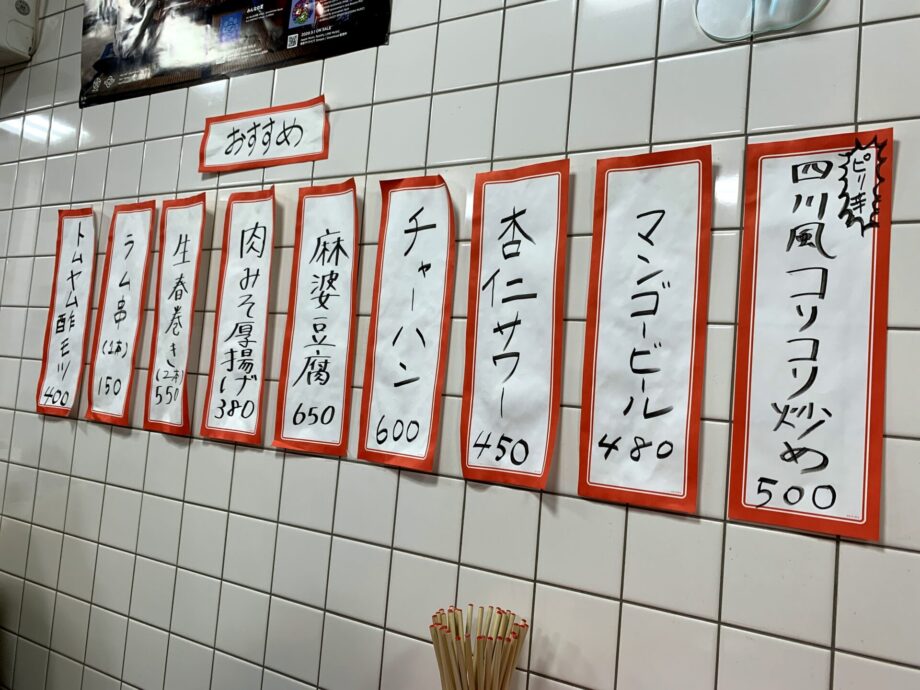 おすすめ
ピリ辛
四川風コリコリ炒め
500
マンゴービール
480
杏仁サワー
450
チャーハン
600
麻婆豆腐
650
肉みそ厚揚げ
380
生春巻き(2本)
550
ラム串(1本)
150
トムヤム酢モツ
400